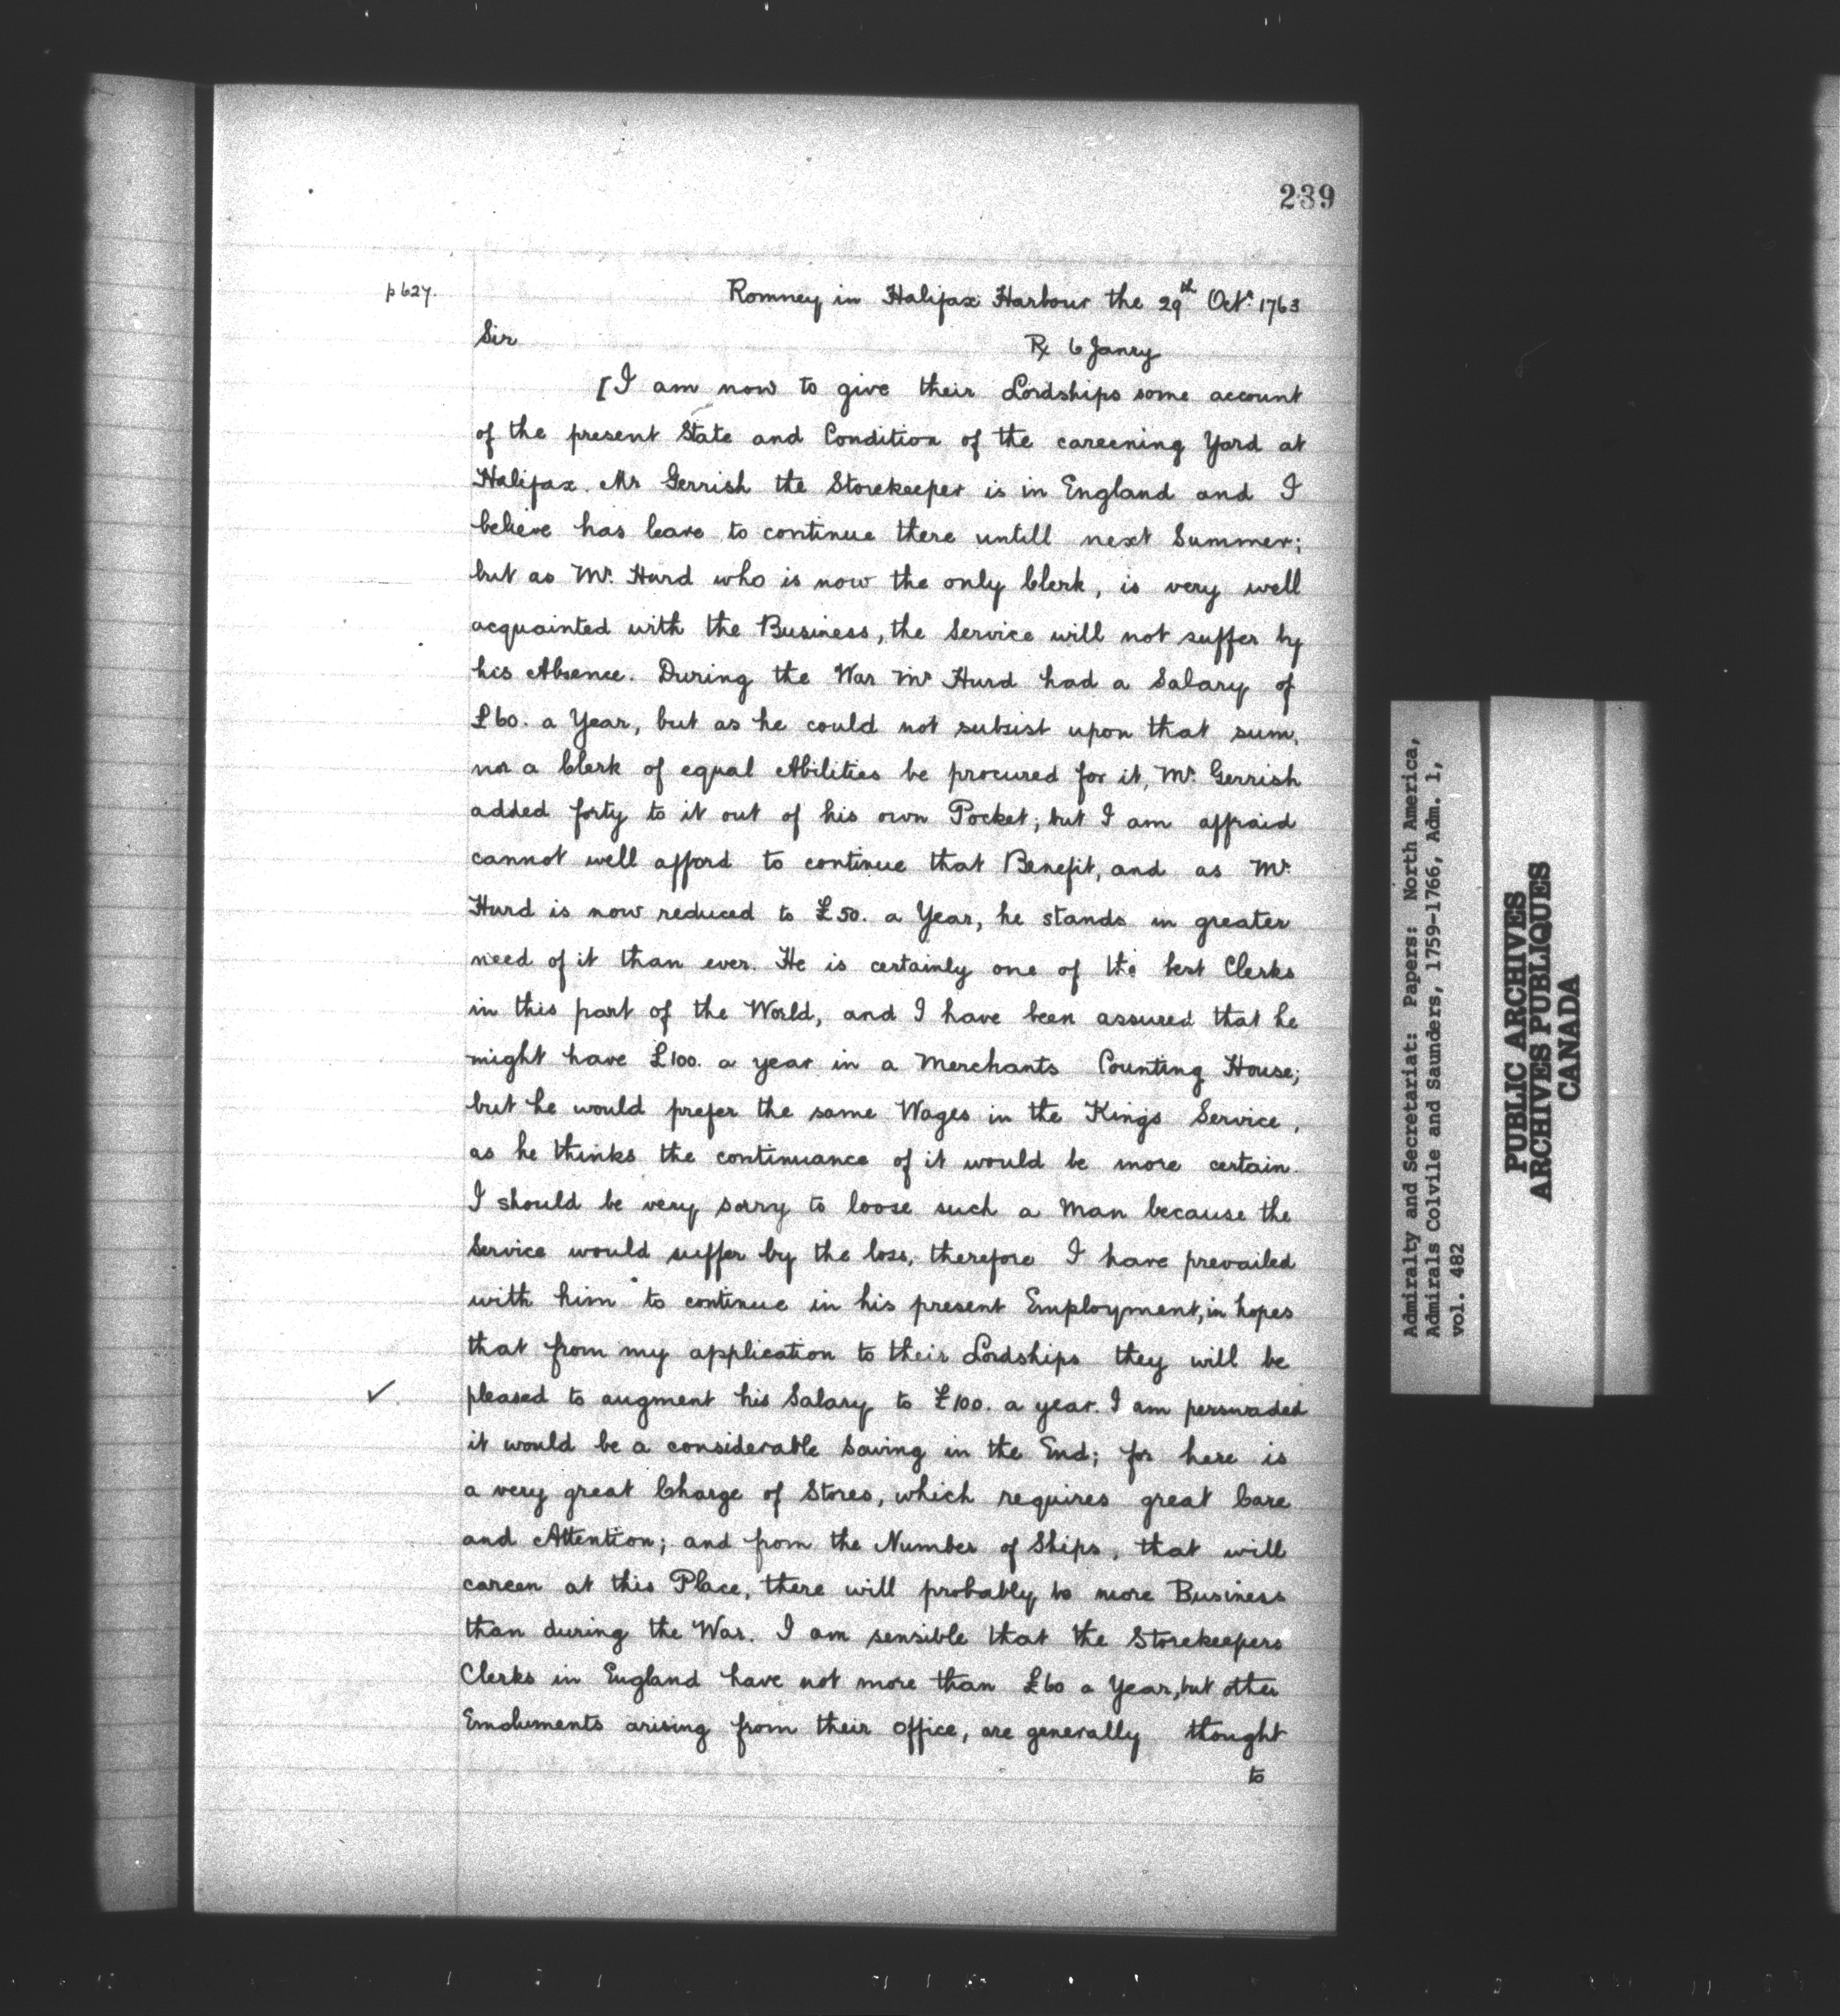 239
p 627.
Romney in Halifax Harbour the 29th Octr. 1763
Sir
Rx 6 Janry
[I am now to give their Lordships some account
of the present State and Condition of the careening Yard at
Halifax. Mr Gerrish the Storekeeper is in England and I
believe has leave to continue there untill next Summer;
but as Mr. Hurd who is now the only Clerk, is very well
acquainted with the Business, the Service will not suffer by
his Absence. During the War Mr Hurd had a Salary of
£60. a Year, but as he could not subsist upon that sum,
nor a Clerk of equal Abilities be procured for it, Mr. Gerrish
added forty to it out of his own Pocket; but I am affraid
cannot well afford to continue that Benefit, and as Mr.
Hurd is now reduced to £50. a Year, he stands in greater
need of it than ever. He is certainly one of the best Clerks
in this part of the World, and I have been assured that he
might have £100. a year in a Merchants Counting House;
but he would prefer the same Wages in the Kings Service,
as he thinks the continuance of it would be more certain.
I should be very sorry to loose such a Man because the
Service would suffer by the loss, therefore I have prevailed
with him to continue in his present Employment, in hopes
that from my application to their Lordships they will be
✓ pleased to augment his Salary to £100. a year. I am perswaded
it would be a considerable Saving in the End; for here is
a very great Charge of Stores, which requires great Care
and Attention; and from the Number of Ships, that will
careen at this Place, there will probably be more Business
than during the War. I am sensible that the Storekeepers
Clerks in England have not more than £60 a Year, but other
Emoluments arising from their Office, are generally thought
to
Admiralty and Secretariat: Papers: North America,
Admirals Colvile and Saunders, 1759-1766, Adm. 1,
vol. 482
PUBLIC ARCHIVES
ARCHIVES PUBLIQUES
CANADA